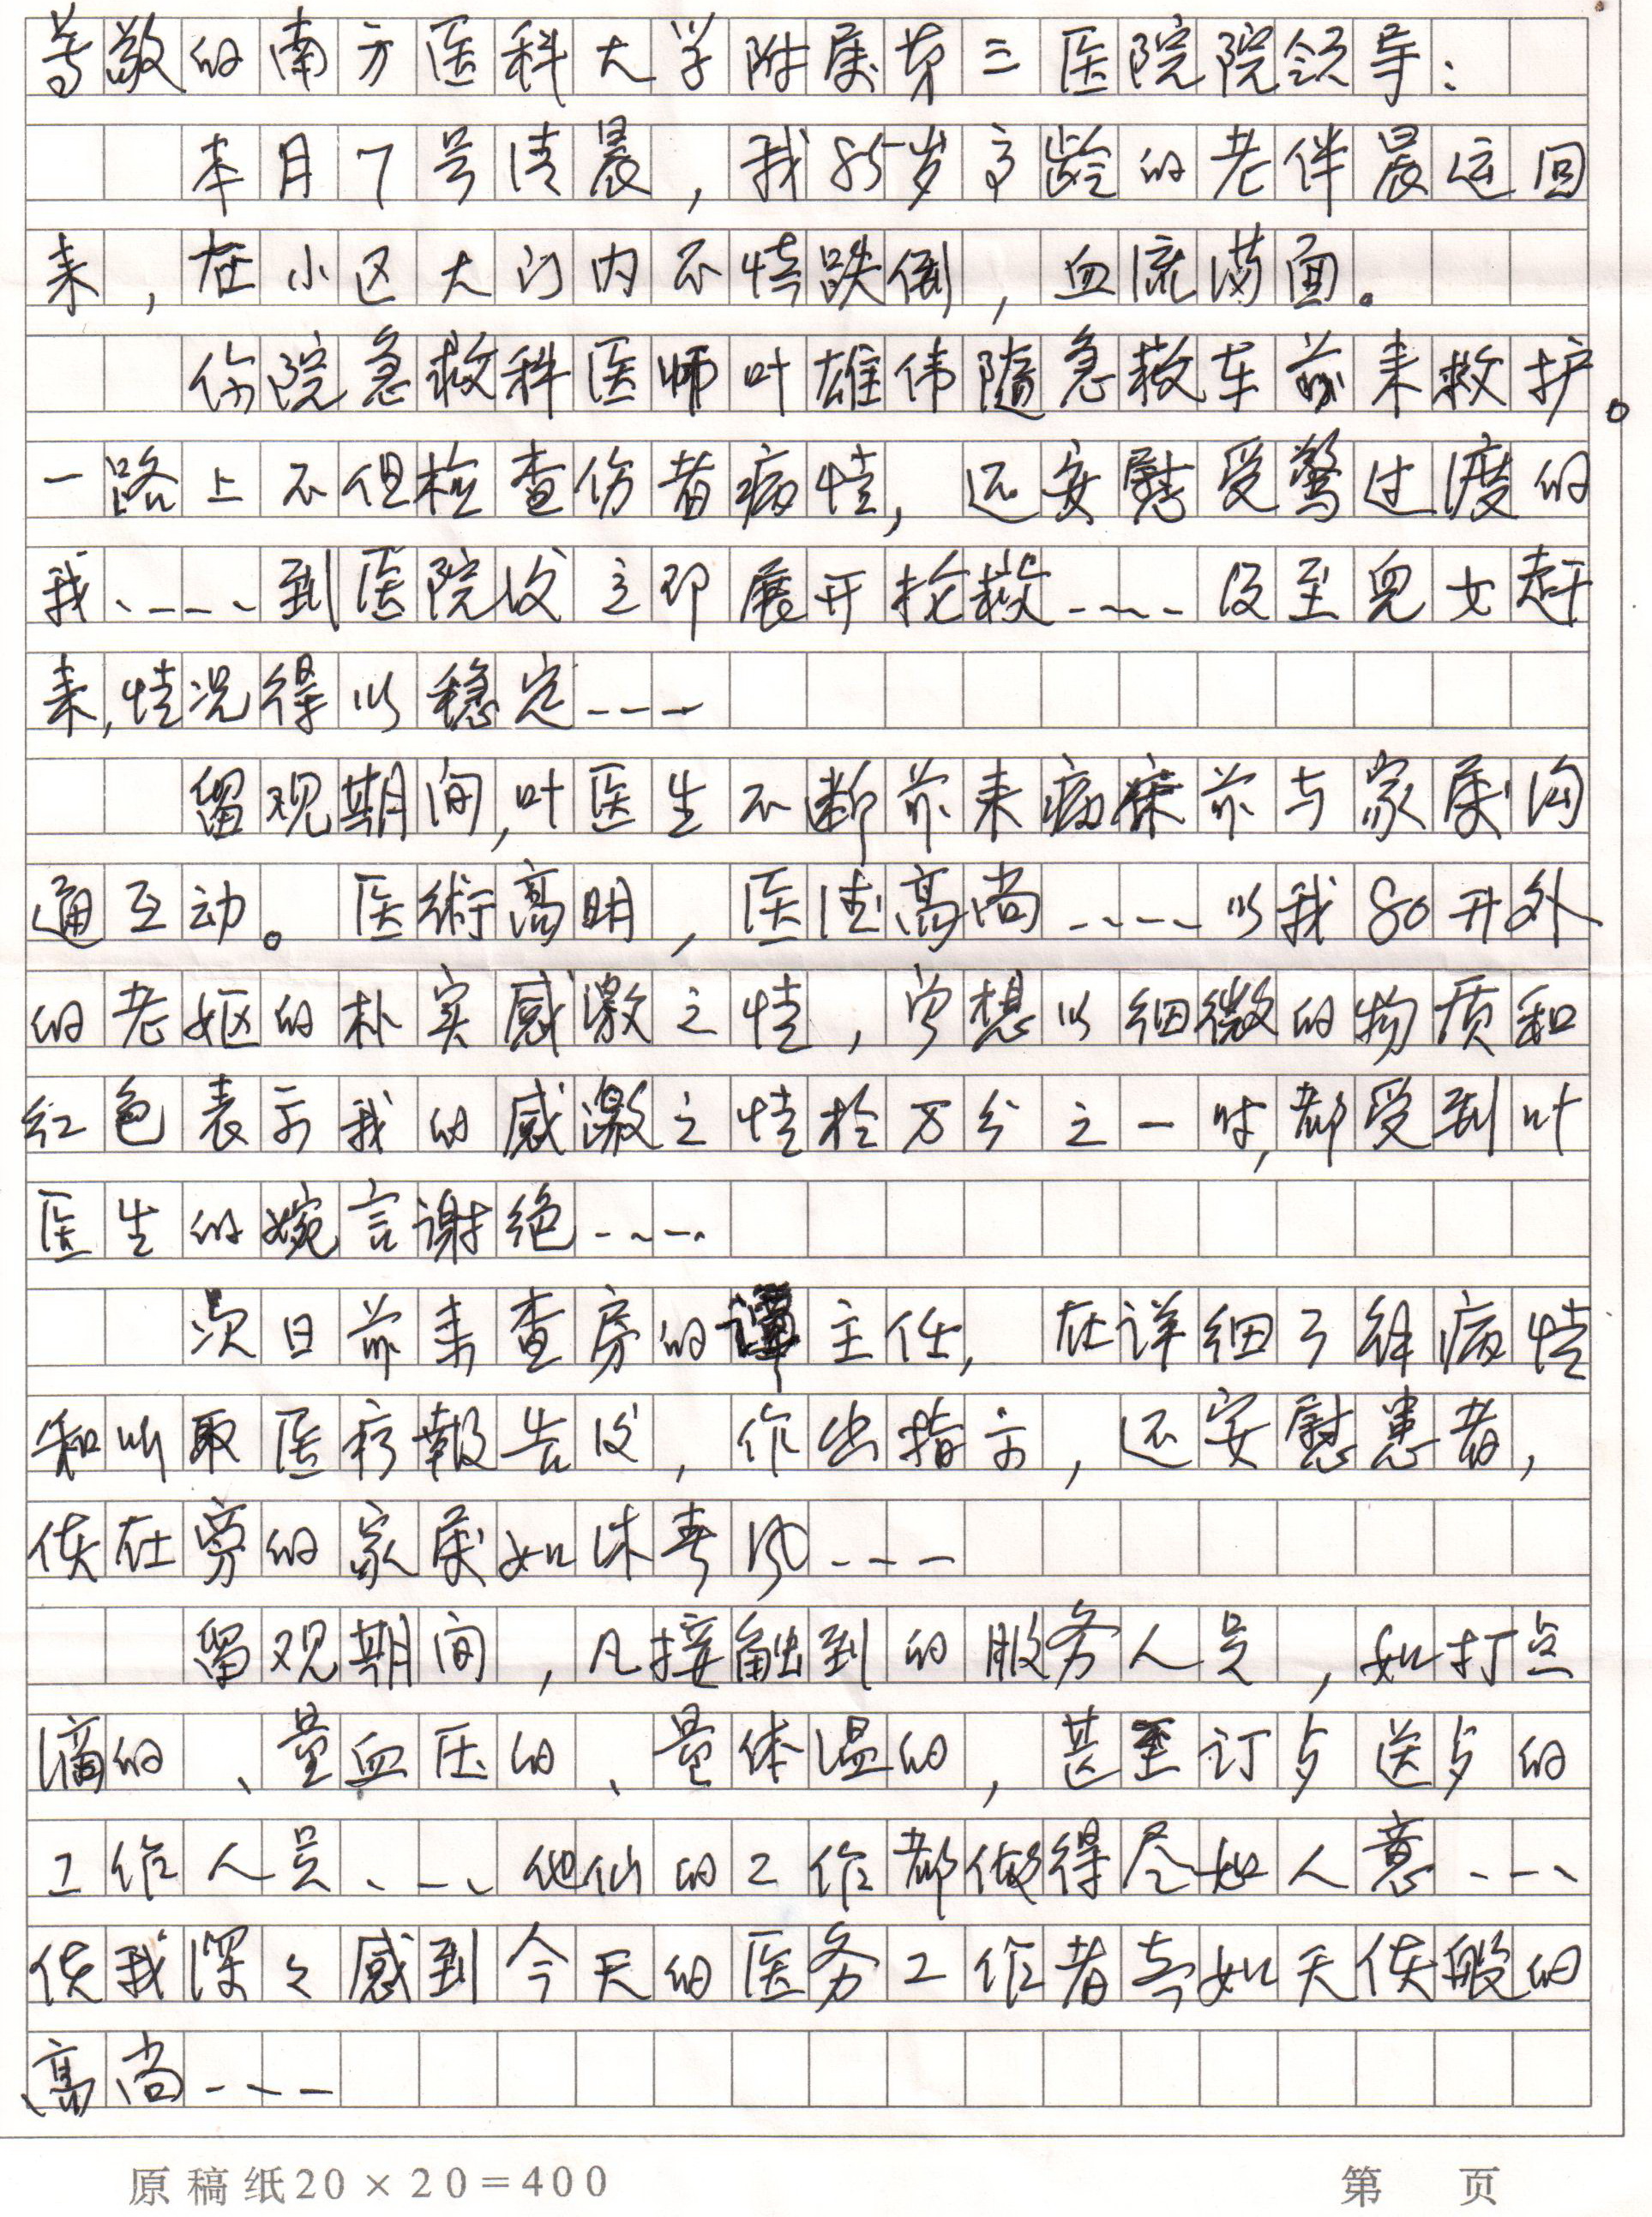 尊敬的南方医科大学附属第三医院院领导：
本月7号清晨，我85岁高龄的老伴晨运回
来，在小区大门内不慎跌倒，血流满面。
你院急救科医师叶雄伟随急救车前来救护。
一路上不但检查伤者病情，还安慰受驚过度的
我……到医院后立即展开抢救……及至兒女赶
来，情况得以稳定……
留观期间，叶医生不断前来病床前与家属沟
通互动。医術高明，医德高尚……以我80开外
的老妪的朴实感激之情，曾想以细微的物质和
红包表示我的感激之情于万分之一时，都受到叶
医生的婉言谢绝……
次日前来查房的谭主任，在详细了解病情
和听取医疗報告后，作出指示，还安慰患者，
使在旁的家属如沐春风……
留观期间，凡接触到的服务人员，如打点
滴的、量血压的、量体温的，甚至订歺送歺的
工作人员……他们的工作都做得尽如人意……
使我深々感到今天的医务工作者亦如天使般的
高尚……
原稿纸20×20=400
第 页